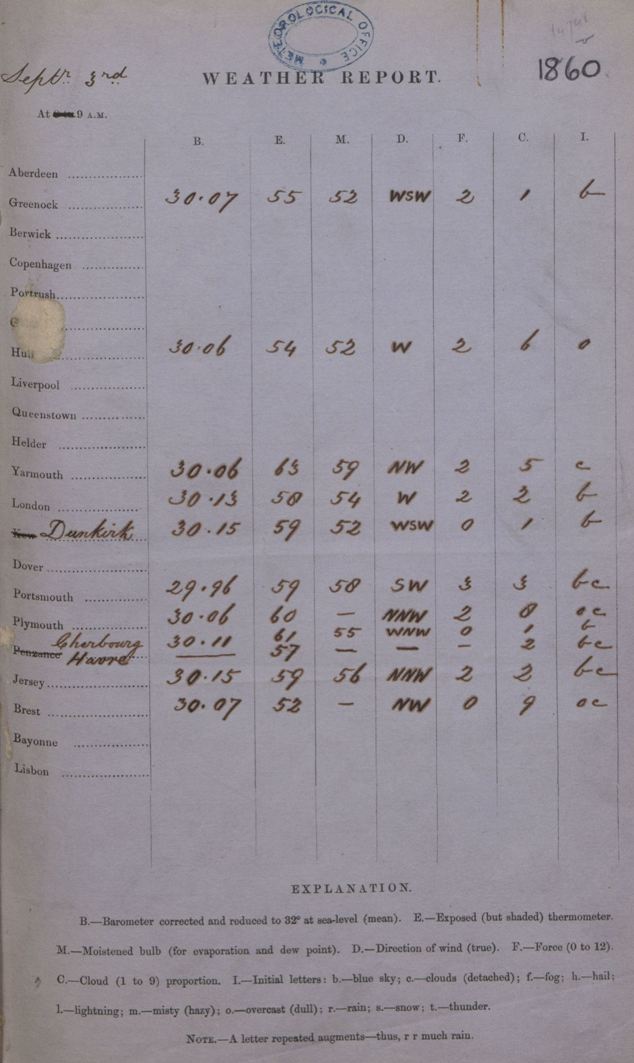 METEOROLOGICAL OFFICE
Septr 3rd WEATHER REPORT. 1860.
At 9 A.M.
B. E. M. D. F. C. I.
Aberdeen
Greenock 30.07 55 52 WSW 2 1 b
Berwick
Copenhagen
Portrush
Hull 30.06 54 52 W 2 6 o
Liverpool
Queenstown
Helder
Yarmouth 30.06 63 59 NW 2 5 c
London 30.13 58 54 W 2 2 b
Dunkirk 30.15 59 52 WSW 0 1 b
Dover
Portsmouth 29.96 59 58 SW 3 3 bc
Plymouth 30.06 60 — NNW 2 8 oc
Cherbourg 30.11 61 55 WNW 0 1 b
Penzance Havre — 57 — — — 2 bc
Jersey 30.15 59 56 NNW 2 2 bc
Brest 30.07 52 — NW 0 9 oc
Bayonne
Lisbon
EXPLANATION.
B.—Barometer corrected and reduced to 32° at sea-level (mean). E.—Exposed (but shaded) thermometer.
M.—Moistened bulb (for evaporation and dew point). D.—Direction of wind (true). F.—Force (0 to 12).
C.—Cloud (1 to 9) proportion. I.—Initial letters: b.—blue sky; c.—clouds (detached); f.—fog; h.—hail;
l.—lightning; m.—misty (hazy); o.—overcast (dull); r.—rain; s.—snow; t.—thunder.
NOTE.—A letter repeated augments—thus, r r much rain.